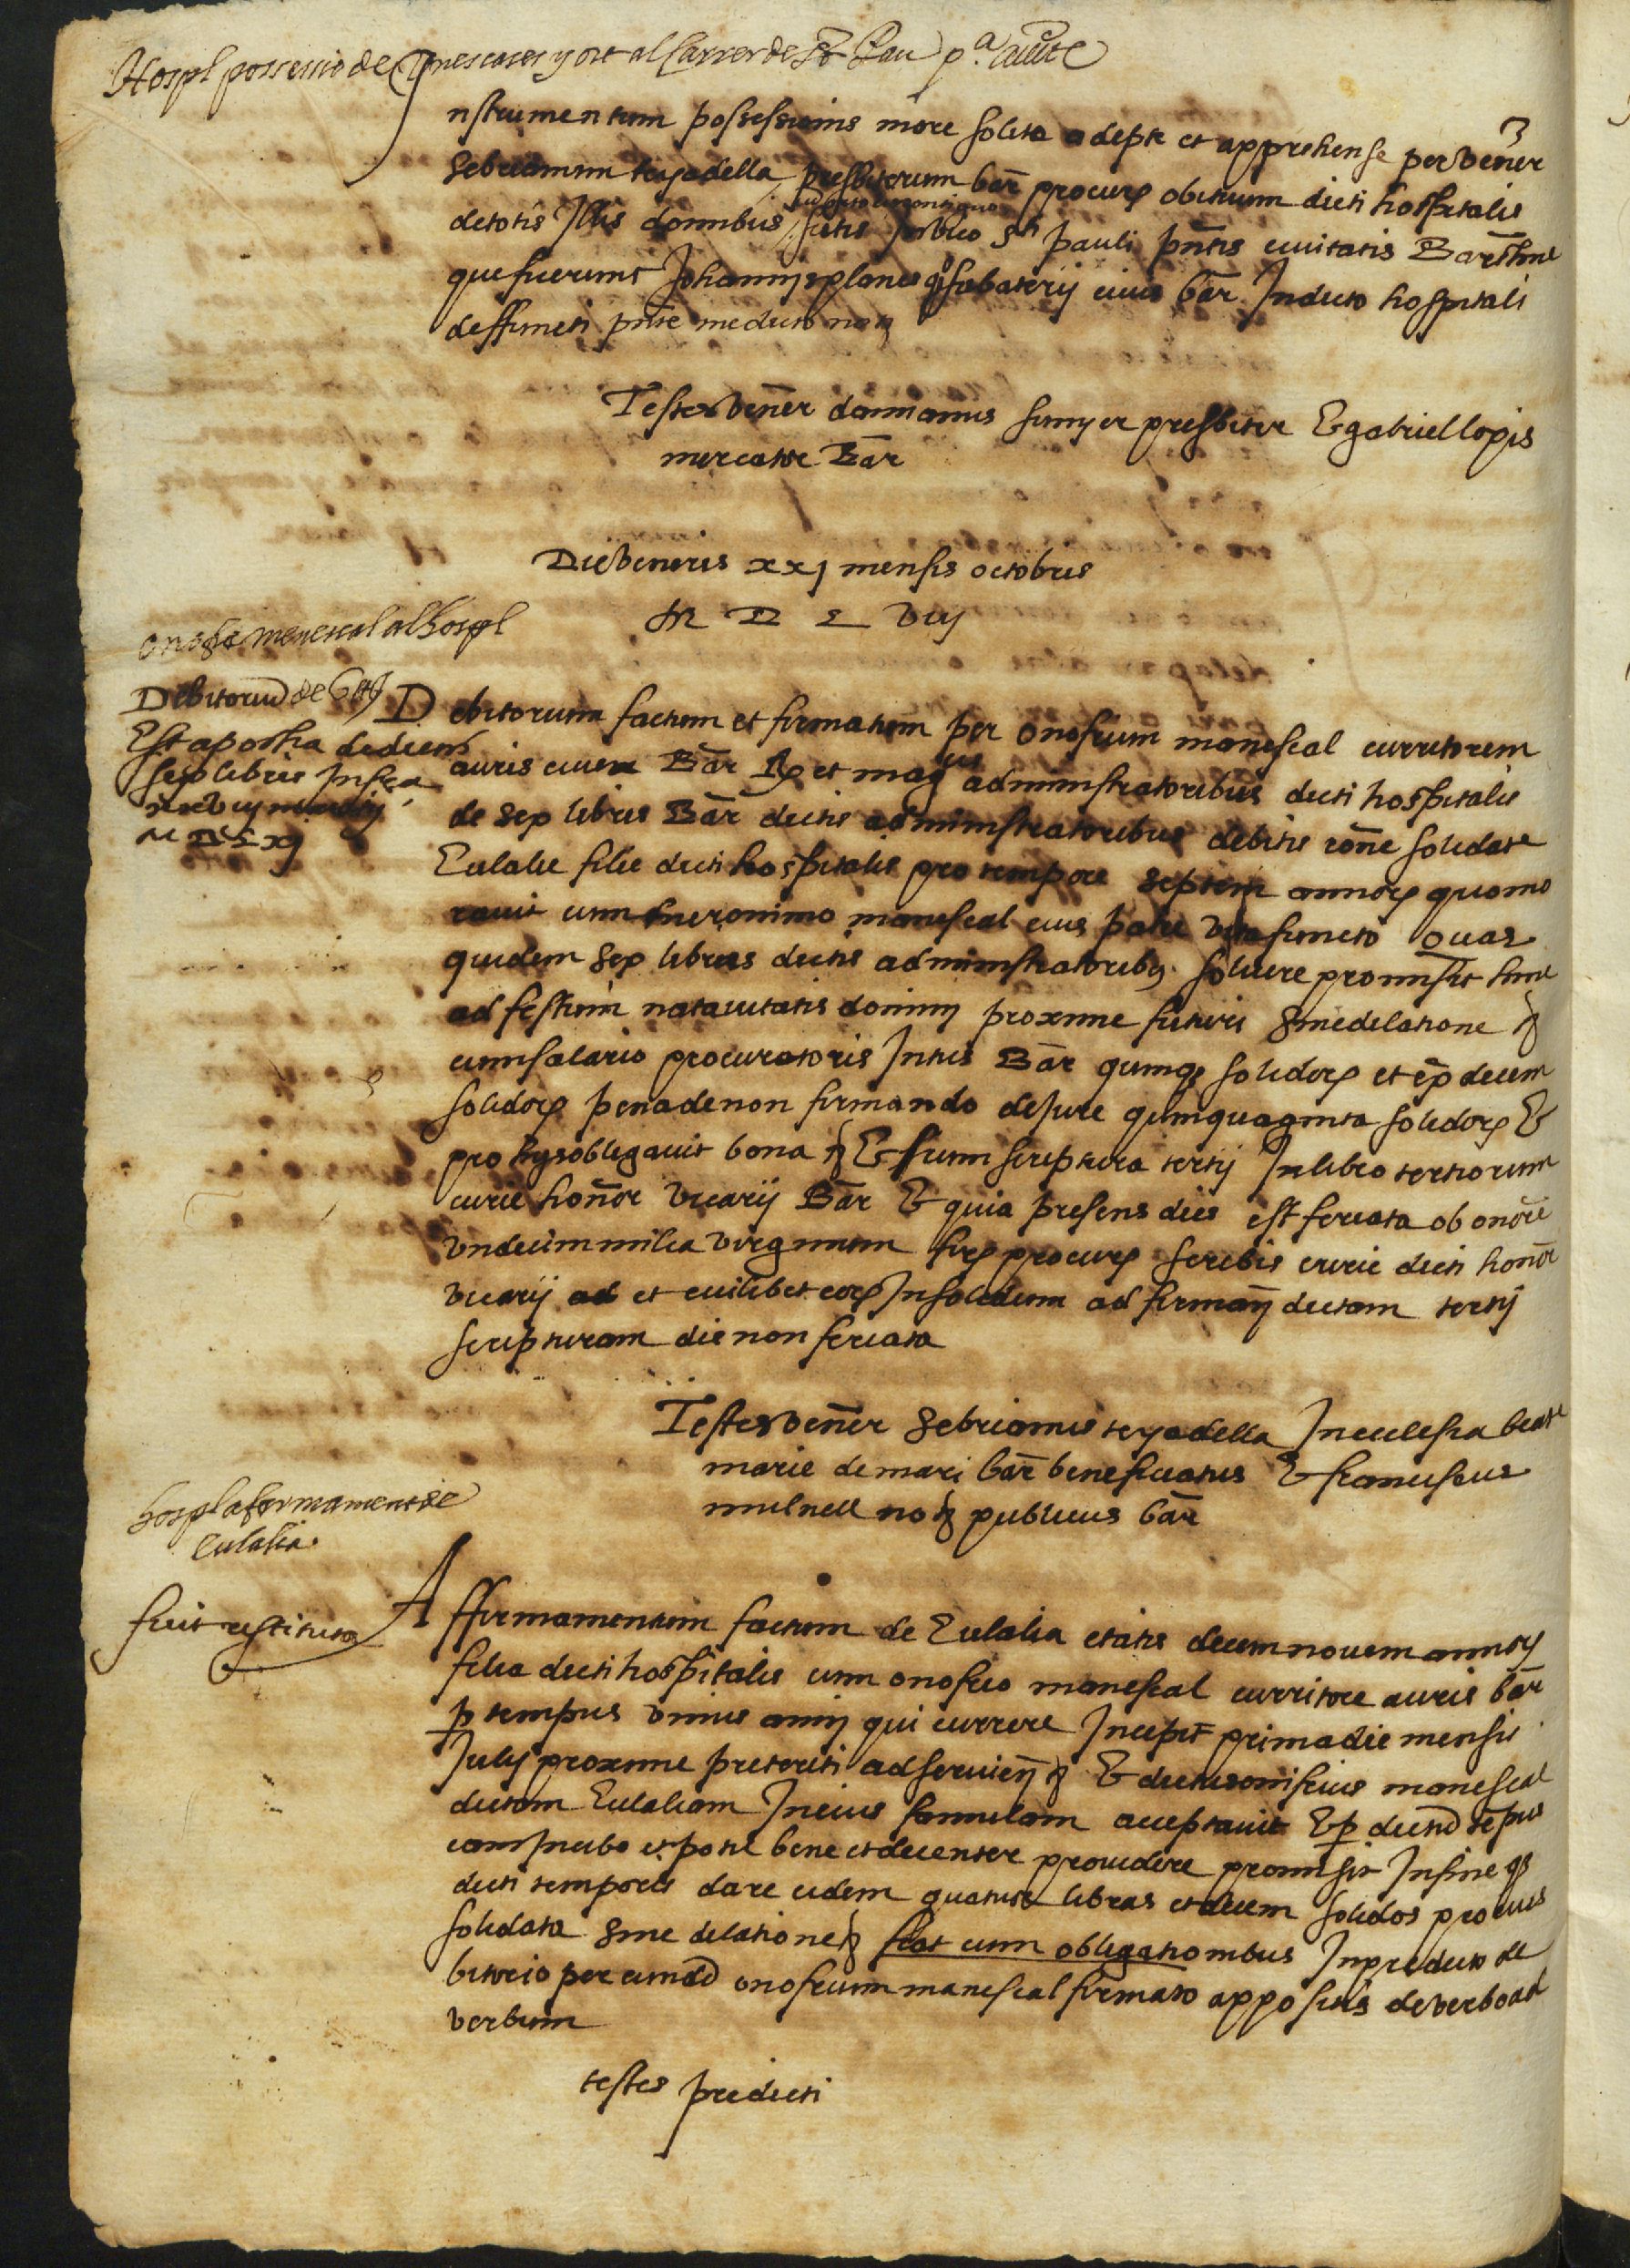 Hospl possessio de unes cases y ort al Carrer de St Pau
Instrumentum possessionis more solito adepte et apprehense per vener
Sebrianum teyadella presbiterum bar procurꝫ obituum dicti hospitalis
de totis Illis domibus sitis In vico Sti pauli pntis civitatis Barchne
que fuerunt Johannis planes qo sabaterij civis bar In dicto hospitali
deffuncti pnte me dicto noꝫ
Testes vener damianus sunyer presbiter & gabriel lopis
mercator Bar
Die veneris xxj mensis octobris
M D L viij
onofre menescal al hospl
Debitorium de
Est apocha de dictis
sex libris Infra
M D L xj
Debitorium factum et firmatum per onofrium manescal curritorem
auris civem Bar et magcis administratoribus dicti hospitalis
de sex libris Bar dictis administratoribus debitis rone solidate
Eulalie filie dicti hospitalis pro tempore septem annorꝫ quo mo
ravit cum hieronimo manescal eius patre vita functo Quas
quidem sex libras dictis administratoribꝫ solvere promisit hinc
ad festum nativitatis domini proxime futuri sine dilatione ꝫ
cum salario procuratoris Intus Bar quinqꝫ solidorꝫ et ex decem
solidorꝫ pena de non firmando de jure quinquaginta solidorꝫ &
pro hijs obligavit bona ꝫ & scriptura tertij In libro tertiorum
curie honor vicarij Bar & quia presens dies est feriata ob onore
undecim milia virginum procurꝫ scribis curie dicti honor
vicarij ad et cuilibet eorꝫ Insolidum ad firmanꝫ dictam tertij
scripturam die non feriata
Testes vener Sebrianus teyadella In ecclesia beate
marie de mari bar beneficiatus & franciscus
mulnell noꝫ publicus bar
hospl afermament de
Eulalia
fuit restituta
Affirmamentum factum de Eulalia etatis decem novem annorꝫ
filia dicti hospitalis cum onofrio manescal curritore auris bar
p tempus unius anni qui currere Incepit prima die mensis
Julij proxime preteriti ad servienꝫ & dictus onifrius manescal
dictam Eulaliam In eius famulam acceptavit & p dictum tempus
eam In cibo et potu bene et decenter providere promisit In fine qꝫ
dicti temporis dare eidem quatuor libras et decem solidos pro eius
solidata sine dilatione ꝫ fiat cum obligationibus In predicto de
bitorio per eundem onofrium manescal firmato appositis de verbo ad
verbum
testes predicti